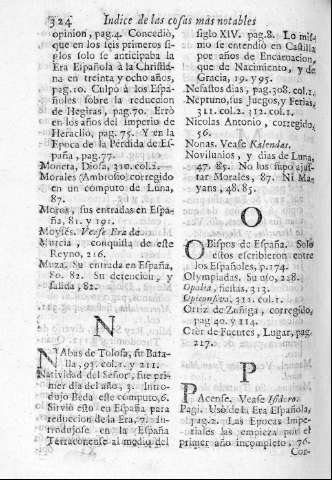 324 Indice de las cosas mas notables
opinion, pag.4. Concediò,
que en los seis primeros si-
glos solo se anticipaba la
Era Española à la Christia-
na en treinta y ocho años,
pag.10. Culpò à los Espa-
ñoles sobre la reduccion
de Hegiras, pag.70. Errò
en los años del imperio de
Heraclio, pag.75. Y en la
Epoca de la Pérdida de Es-
paña, pag.77.
Moneta, Diosa, 310.col.2.
Morales (Ambrosio) corregido
en un computo de Luna,
87.
Moros, sus entradas en Espa-
ña, 81. y 191.
Moysés. Vease Era de
Murcia, conquista de este
Reyno, 216.
Muza. Su entrada en España,
80. 82. Su detencion, y
salida, 82.
N
NAbas de Tolosa, su Bata-
lla, 93. col.1. y 211.
Natividad del Señor, fue pri-
mer dia del año, 3. Introdu-
jo Beda este computo, 6.
Sirviò esto en España para
reduccion de la Era, 7. In-
trodujose en la España
Terraconense al medio del
siglo XIV. pag.8. Lo mis-
mo se entendió en Castilla
por años de Encarnacion,
que de Nacimiento, y de
Gracia, 19. y 95.
Nefastos dias, pag.308. col.1.
Neptuno, sus Juegos, y Ferias,
311.col.2. 312.col.1.
Nicolas Antonio, corregido,
56.
Nonas. Vease Kalendas.
Novilunios, y dias de Luna,
47. 85. No las supo ajus-
tar Morales, 87. Ni Ma-
yans, 48.85.
O
OBispos de España. Solo
estos escribieron entre
los Españoles, p.174.
Olympiadas. Su uso, 228.
Opalia, fiestas, 313.
312.col.1.
Ortiz de Zuñiga, corregido,
pag 40. y 114.
Oter de Fuentes, Lugar, pag.
217.
P
PAcense. Vease Isidoro.
Pagi. Usò de la Era Española,
pag.2. Las Epocas Impe-
riales las empieza por el
primer año incompleto, 76.
Cor-